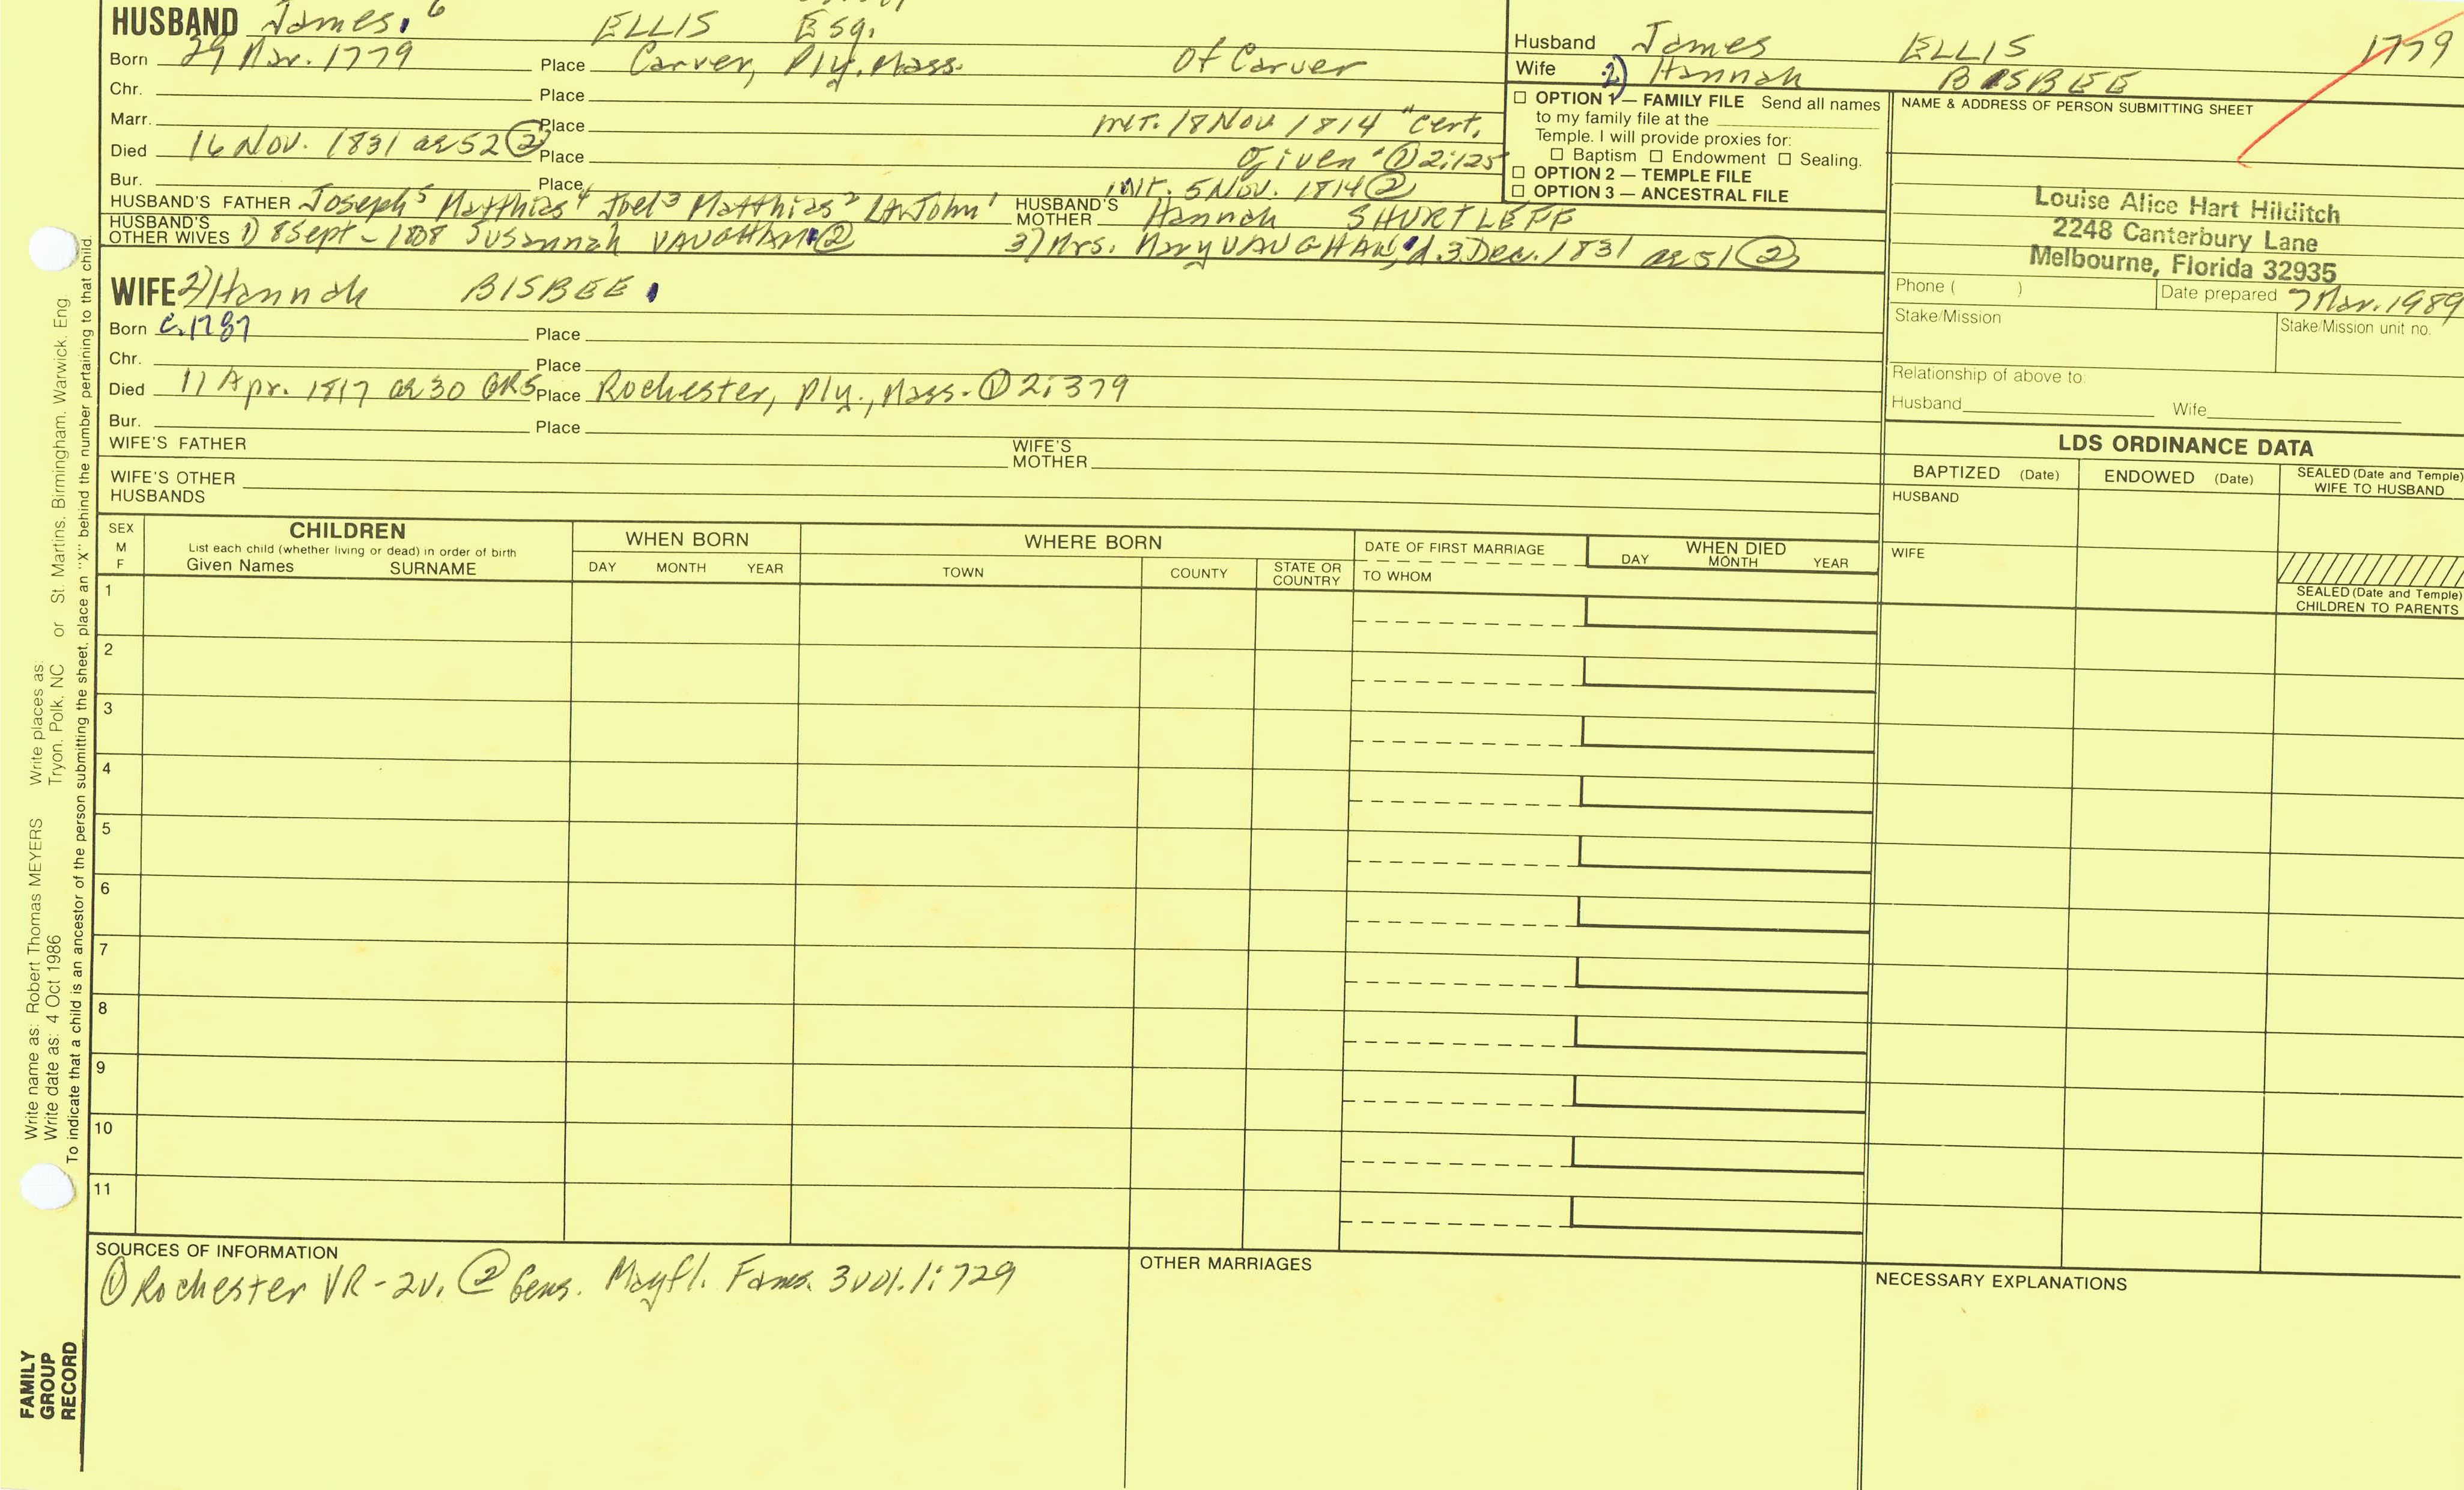 HUSBAND James. 6 ELLIS Esq.
Born 29 Mar. 1779 Place Carver, Ply. Mass. Of Carver
Chr. Place
Marr. Place mer. 18 Nov 1814 "Cert.
Died 16 Nov. 1831 ae 52 ② Place Given" ① 2:125
Bur. Place int. 5 Nov. 1814 ②
HUSBAND'S FATHER Joseph 5 Matthias 4 Joel 3 Matthias 2 Lt. John 1 HUSBAND'S MOTHER Hannah SHURTLEFF
HUSBAND'S OTHER WIVES 1) 8 Sept - 1808 Susannah VAUGHAN ② 3) Mrs. Mary VAUGHAN, d. 3 Dec. 1831 ae 51 ②
WIFE 2) Hannah BISBEE.
Born c. 1787 Place
Chr. Place
Died 11 Apr. 1817 ae 30 GR5 Place Rochester, Ply., Mass. ① 2:379
Bur. Place
WIFE'S FATHER WIFE'S MOTHER
WIFE'S OTHER HUSBANDS
Husband James ELLIS 1779
Wife 2) Hannah BISBEE
☐ OPTION 1 — FAMILY FILE Send all names
to my family file at the
Temple. I will provide proxies for:
☐ Baptism ☐ Endowment ☐ Sealing.
☐ OPTION 2 — TEMPLE FILE
☐ OPTION 3 — ANCESTRAL FILE
NAME & ADDRESS OF PERSON SUBMITTING SHEET
Louise Alice Hart Hilditch
2248 Canterbury Lane
Melbourne, Florida 32935
Phone ( ) Date prepared 7 Mar. 1989
Stake/Mission Stake/Mission unit no.
Relationship of above to:
Husband Wife
LDS ORDINANCE DATA
BAPTIZED (Date) ENDOWED (Date) SEALED (Date and Temple) WIFE TO HUSBAND
HUSBAND
WIFE
SEALED (Date and Temple) CHILDREN TO PARENTS
SEX M F
CHILDREN
List each child (whether living or dead) in order of birth
Given Names SURNAME
WHEN BORN
DAY MONTH YEAR
WHERE BORN
TOWN COUNTY STATE OR COUNTRY
DATE OF FIRST MARRIAGE
TO WHOM
WHEN DIED
DAY MONTH YEAR
1
2
3
4
5
6
7
8
9
10
11
SOURCES OF INFORMATION
① Rochester VR - 2v. ② Gens. Mayfl. Fams. 3 vol. 1:729
OTHER MARRIAGES
NECESSARY EXPLANATIONS
Write name as: Robert Thomas MEYERS Write places as:
Write date as: 4 Oct 1986 Tryon, Polk, NC or St. Martins, Birmingham, Warwick, Eng
To indicate that a child is an ancestor of the person submitting the sheet, place an "X" behind the number pertaining to that child.
FAMILY
GROUP
RECORD